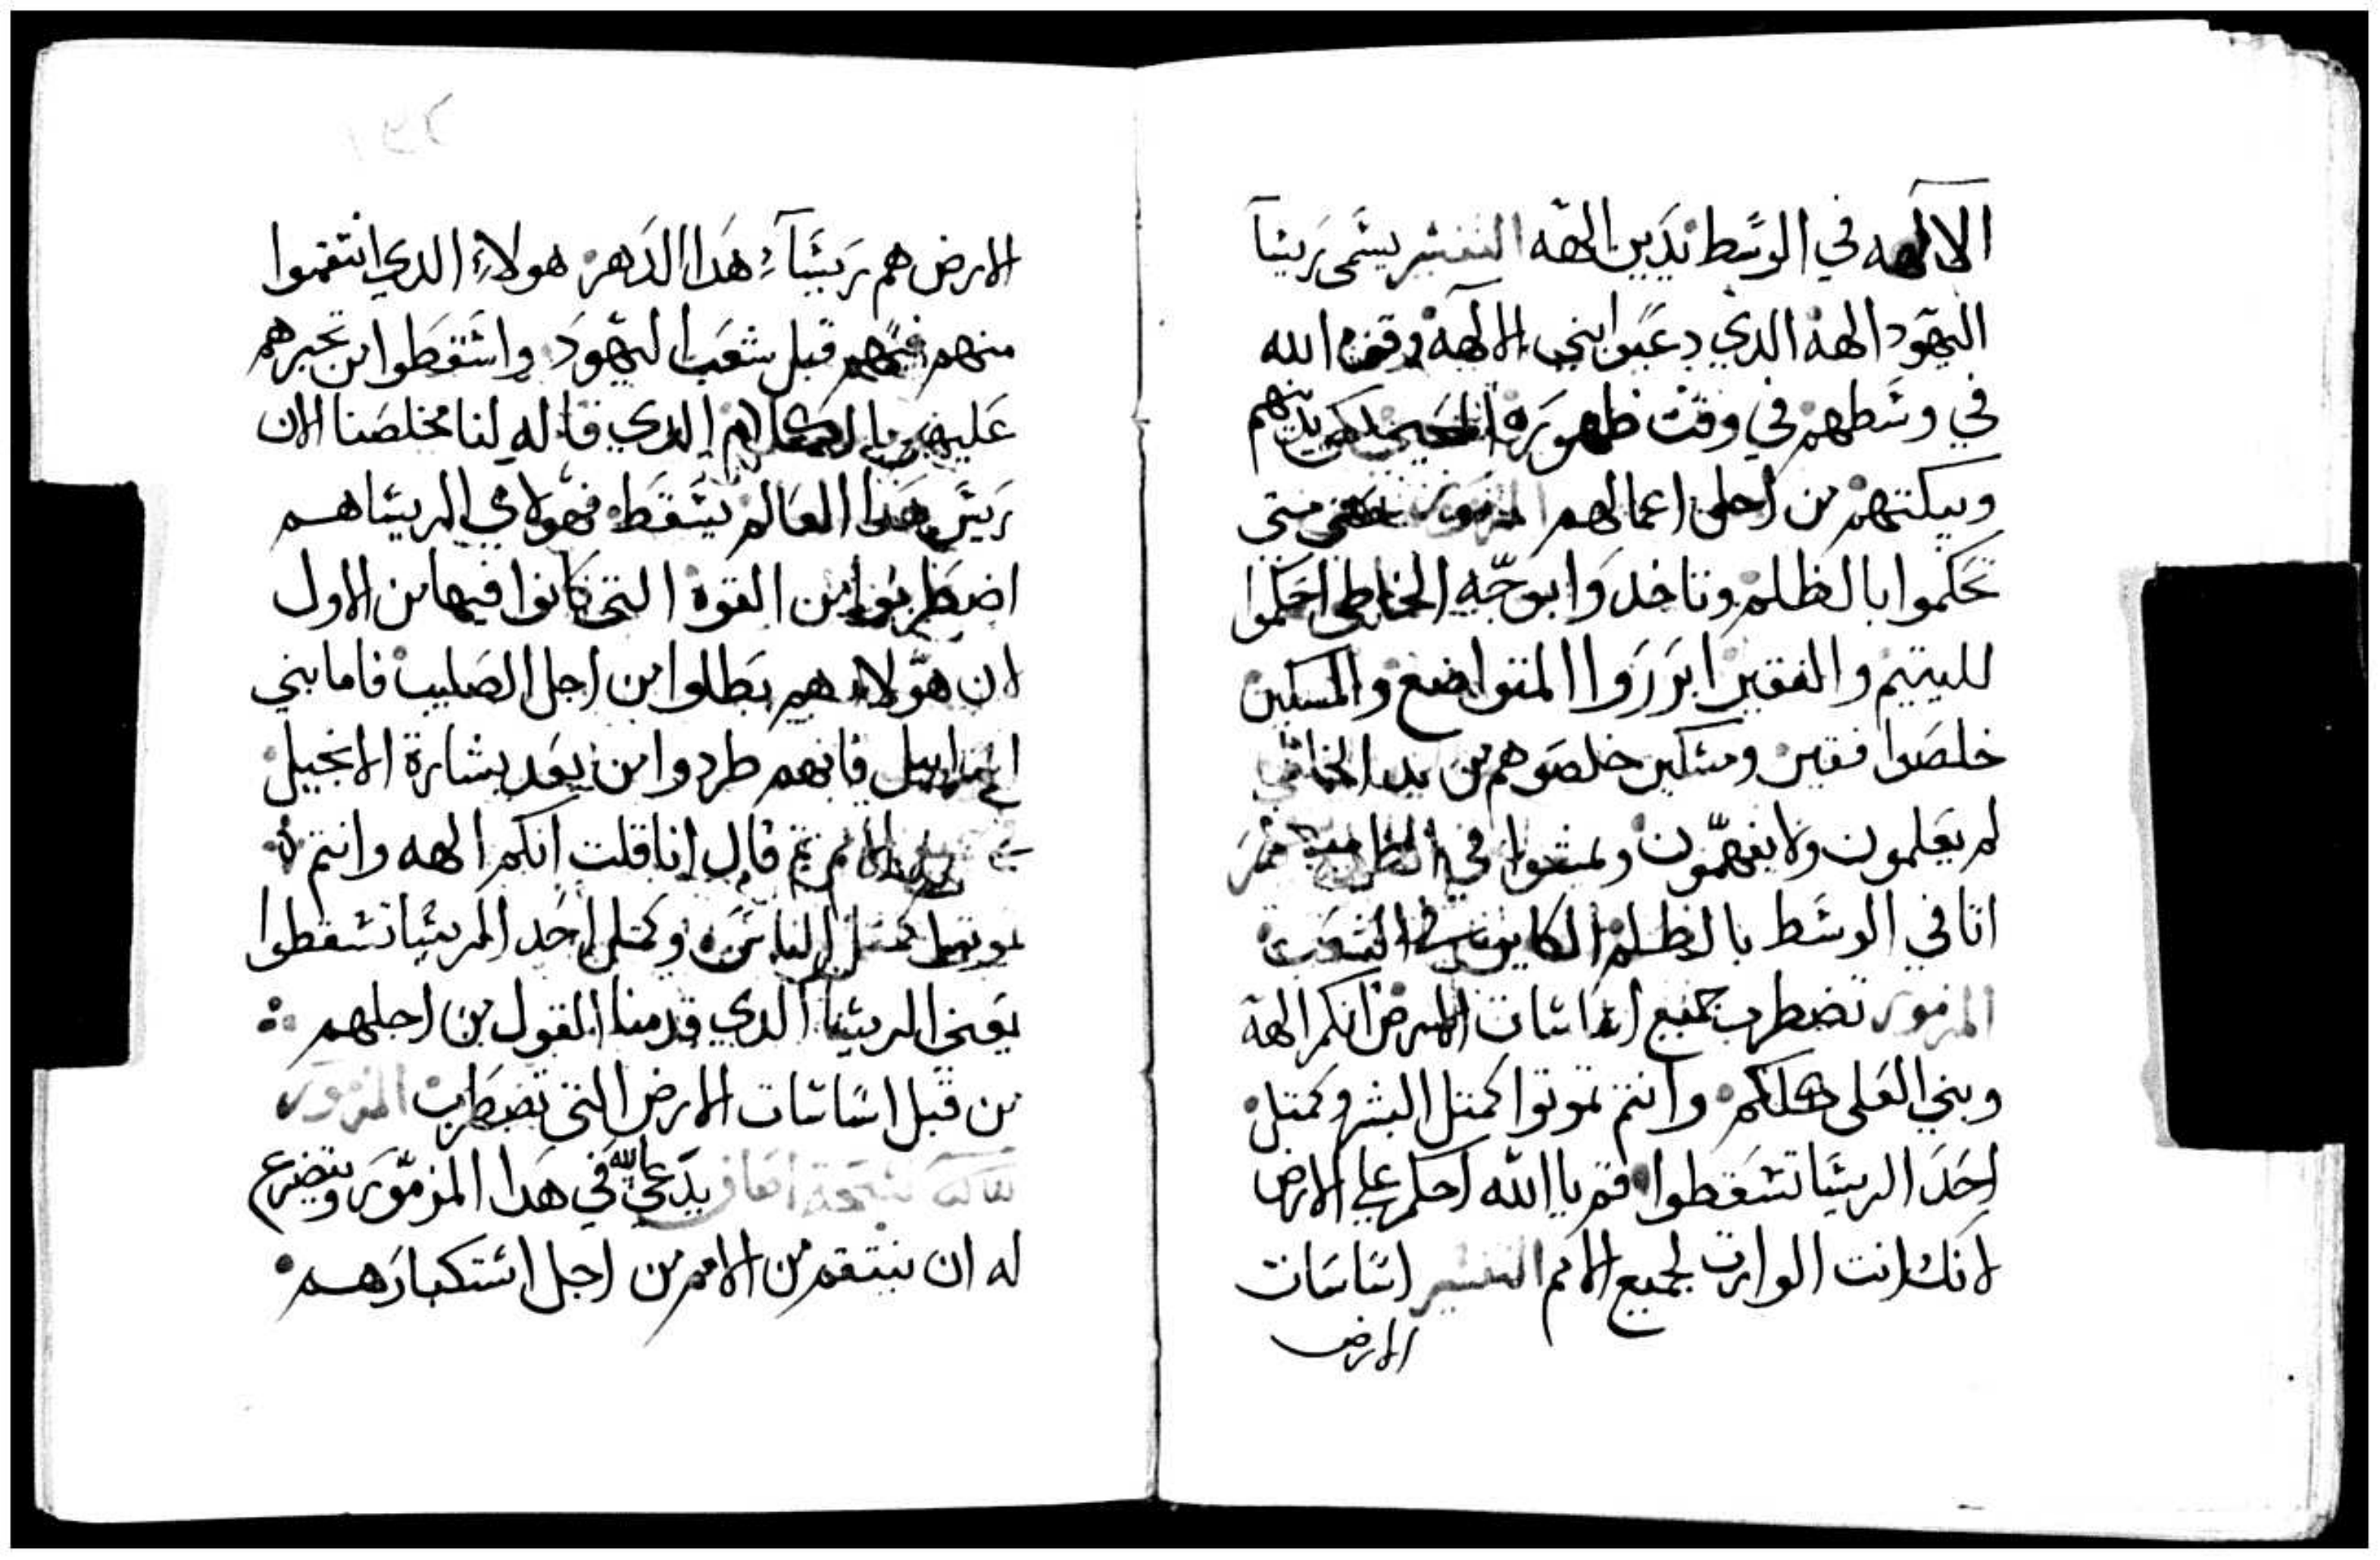 الالهه في الوسط يدين الهه التفسير يسمى ريسا
اليهود الهه الدي دعيوا بني الالهة وقف الله
في وسطهم في وقت ظهوره يدينهم
ويبكتهم من اجل اعمالهم المزمور حتى متى
تحكموا بالظلم وتاخدوا بوجه الخاطي احكموا
لليتيم والفقير ابرروا المتواضع والمسكين
خلصوا فقير ومسكين خلصوهم من يد الخاطي
لم يعلمون ولا يفهمون ويمشوا في
اتا في الوسط بالظلم الكاين في الشعب
المزمور تضطرب جميع اساسات الارض انكم الهة
وبني العلى كلكم وانتم تموتوا كمتل البشر وكمتل
احد الريسا تسقطوا قم يا الله احكم على الارض
لانك انت الوارت لجميع الامم التفسير اساسات
الارض
الارض هم ريساء هدا الدهر هولاء الدي انتقموا
منهم قبل شعب اليهود واسقطوا من تجبرهم
عليهم الدي قاله لنا مخلصنا الان
ريس هدا العالم يسقط فهولاي الريسا هم
اضطربوا من القوة التي كانوا فيها من الاول
لان هولاء هم بطلوا من اجل الصليب فاما بني
اسراييل فانهم طردوا من بعد بشارة الانجيل
تم قال انا قلت انكم الهه وانتم
تموتوا كمتل الناس وكمتل احد الريسا تسقطوا
يعني الريسا الدي قدمنا القول من اجلهم
من قبل اساسات الارض التي تضطرب المزمور
يدعي الله في هدا المزمور ويتضرع
له ان ينتقم من الامم من اجل استكبارهم